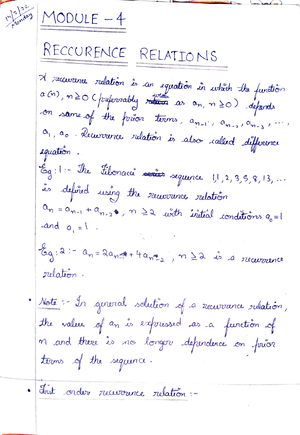 Monday
MODULE - 4
RECCURENCE RELATIONS
A recurrence relation is an equation in which the function
a(n), n≥0 (preferrably as an, n≥0) depends
on some of the prior terms, an-1, an-2, an-3, ...,
a1, a0. Recurrence relation is also called difference
equation.
Eg:1:- The Fibonacci sequence 1,1,2,3,5,8,13,...
is defined using the recurrence relation
an = an-1 + an-2, n≥2 with initial conditions a0=1
and a1=1.
Eg:2:- an=2an-1+4an-2, n≥2 is a recurrence
relation.
• Note:- In general solution of a recurrence relation,
the value of an is expressed as a function of
n and there is no longer dependence on prior
terms of the sequence.
• First order recurrence relation:-